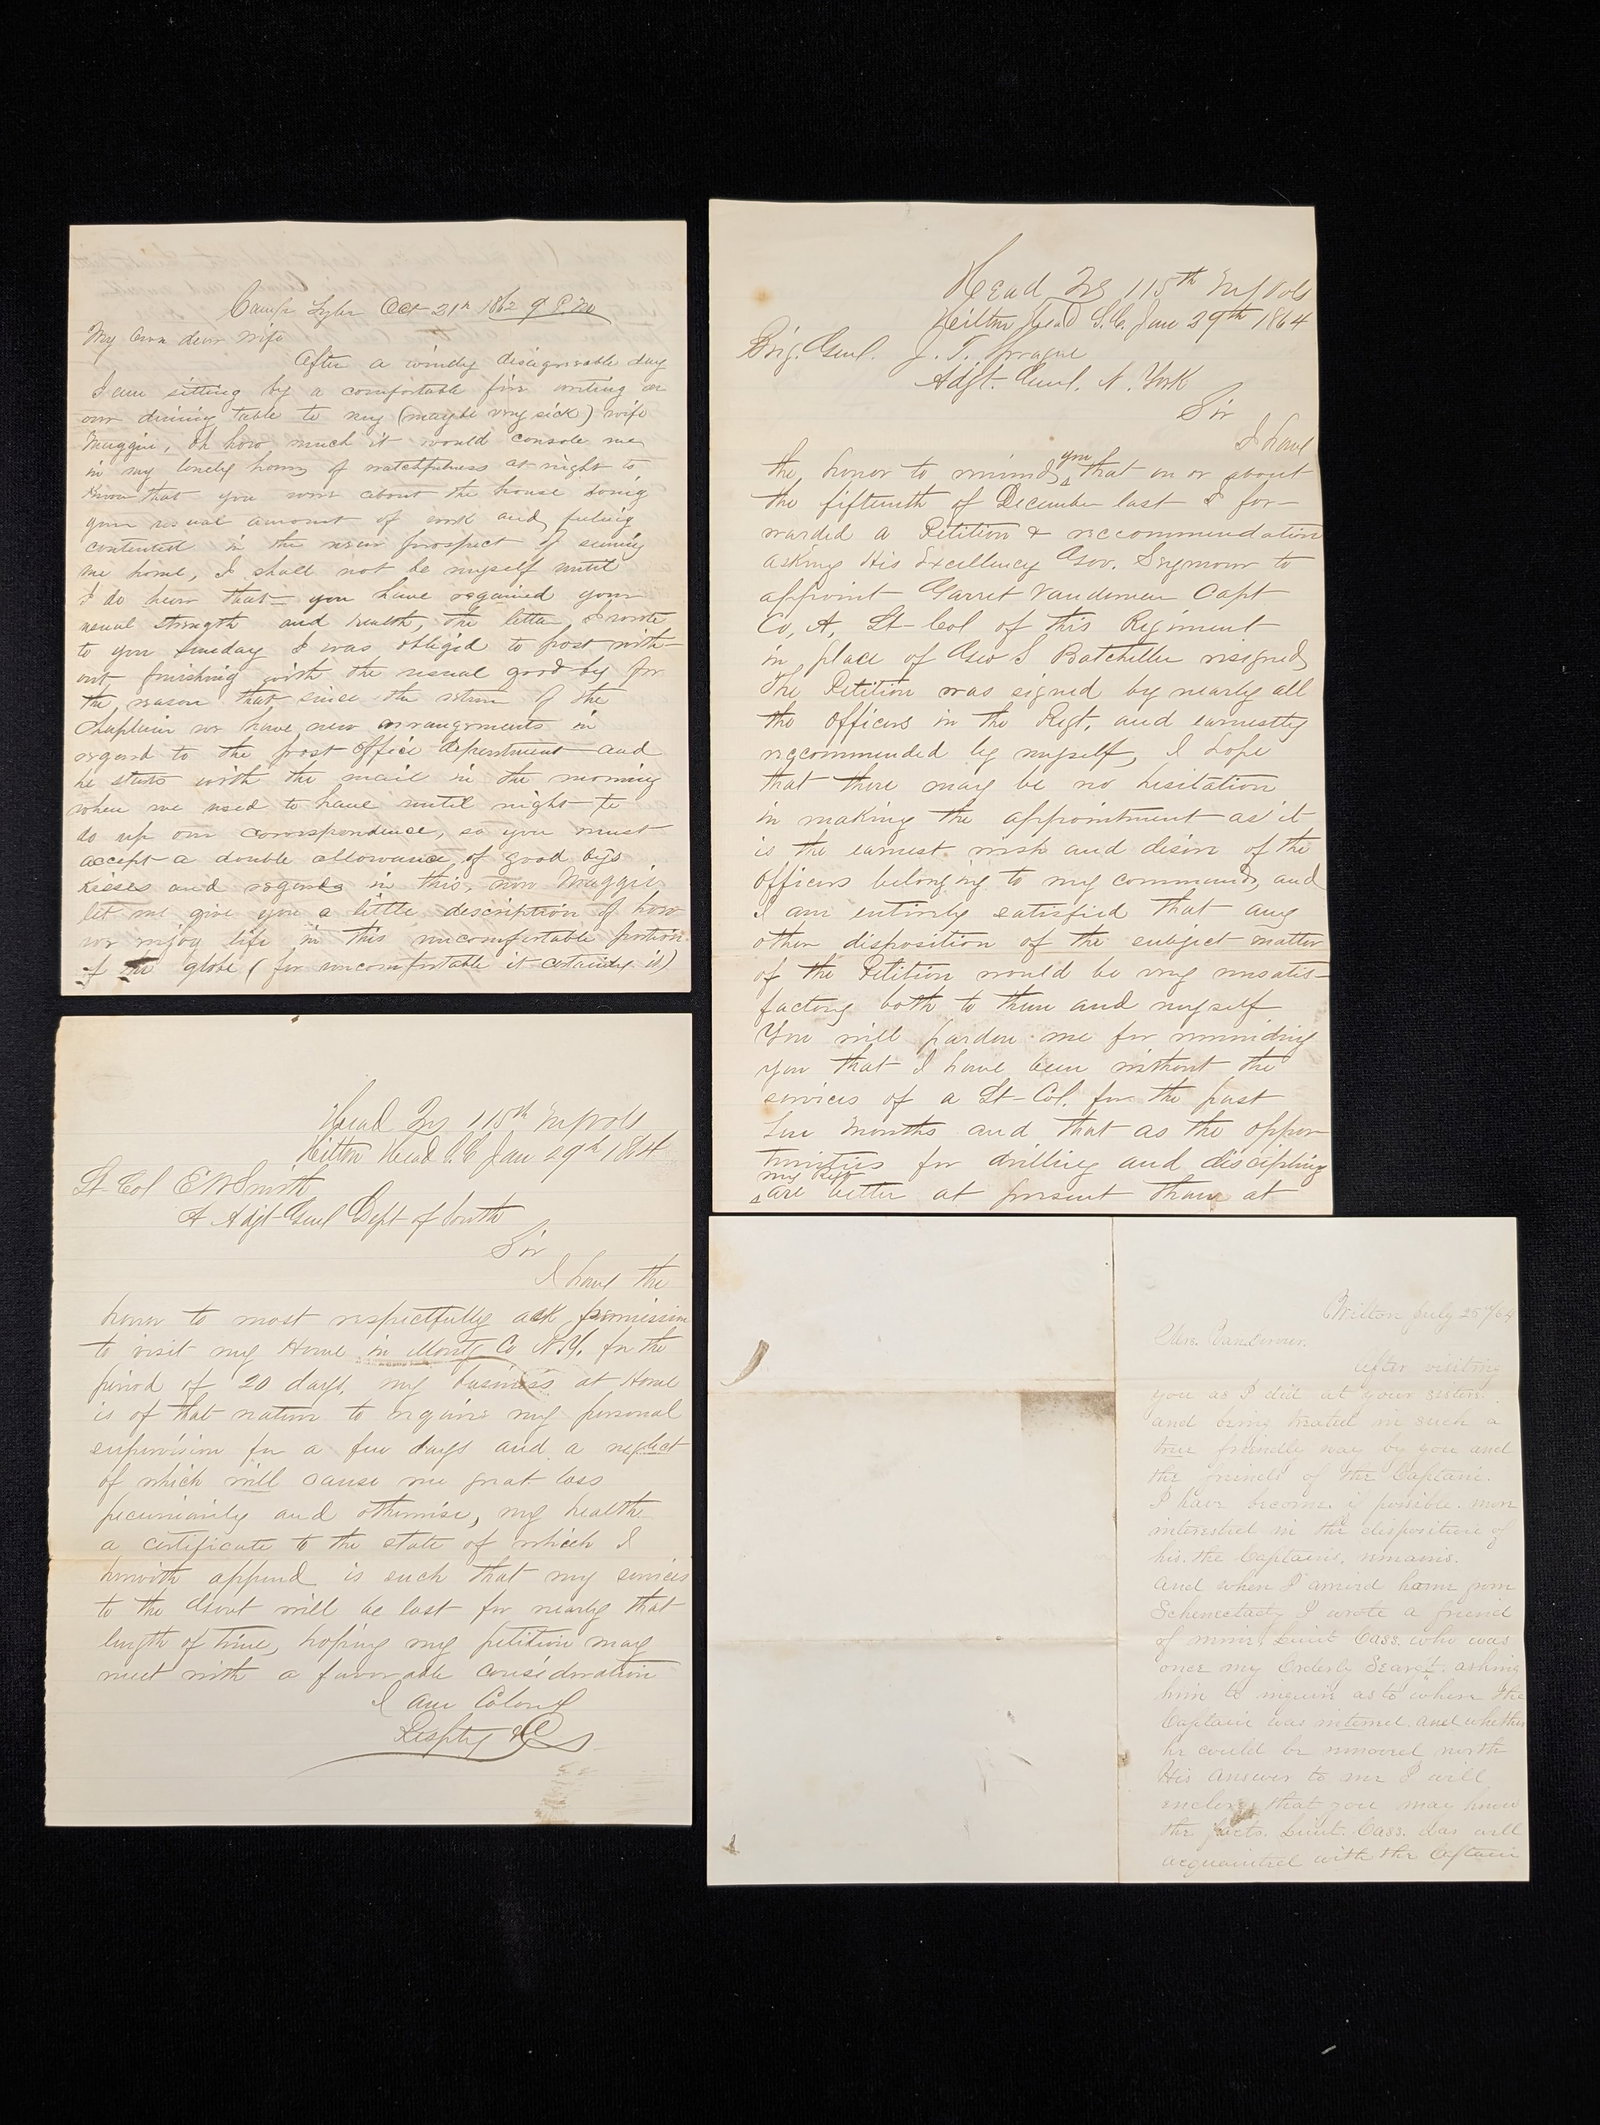 Camp Tyler Oct 21st 1862 9 P.M
My Own dear Wife
After a windy disagreeable day
I am sitting by a comfortable fire writing on
our dining table to my (maybe very sick) wife
Maggie, Oh how much it would console me
in my lonely hours of watchfulness at night to
know that you were about the house doing
your usual amount of work and feeling
contented in the near prospect of seeing
me home, I shall not be myself until
I do hear that you have regained your
usual strength and health, the letter I wrote
to you Sunday I was obliged to post with-
out finishing with the usual good by for
the reason that since the return of the
Chaplain we have new arrangements in
regard to the post office department and
he starts with the mail in the morning
when we used to have until night to
do up our correspondence, so you must
accept a double allowance, of good bys
Kisses and regards in this, now Maggie
let me give you a little description of how
we enjoy life in this uncomfortable portion
of the globe (for uncomfortable it certainly is)
Head Qrs 115th NY Vols
Hilton Head S.C. Jan 29th 1864
Brig. Genl. J. T. Sprague
Adjt. Genl. N. York
Sir
I have
the honor to remind you that on or about
the fifteenth of December last I for-
warded a Petition & reccommendation
asking His Excellency Gov. Seymour to
appoint Garret Vanderveer Capt
Co, A, Lt-Col of this Regiment
in place of Geo S Batcheller resigned
The Petition was signed by nearly all
the officers in the Regt, and earnestly
reccommended by myself, I hope
that there may be no hesitation
in making the appointment as it
is the earnest wish and desire of the
Officers belonging to my command, and
I am entirely satisfied that any
other disposition of the subject matter
of the Petition would be very unsatis-
factory both to them and myself
You will pardon me for reminding
you that I have been without the
services of a Lt-Col. for the past
Months and that as the oppor
tunities for drilling and discipling
my Regt are better at present than at
Head Qrs 115th NY Vols
Hilton Head S.C Jan 29th 1864
Lt Col E W Smith
A Adjt Genl Dept of South
Sir
I have the
honor to most respectfully ask permission
to visit my Home in Montg Co N.Y. for the
period of 20 days, my business at Home
is of that nature to require my personal
supervision for a few days and a neglect
of which will cause me great loss
pecuniarily and otherwise, my health
a certificate to the state of which I
herewith append is such that my services
to the Govt will be lost for nearly that
length of time, hoping my petition may
meet with a favorable consideration
I am Colonel
Respty &c
Wilton July 25th/64
Mrs. Vanderveer.
After visiting
you as I did at your sisters.
and being treated in such a
true friendly way by you and
the friends of the Captain.
I have become if possible. more
interested in the disposition of
his. the Captains. remains.
And when I arrived home from
Schenectady I wrote a friend
of mine Lieut Cass. who was
once my Orderly Seargt. asking
him to inquire as to where the
Captain was interred. and whether
he could be removed north
His answer to me I will
enclose that you may know
the facts. Lieut. Cass. was well
acquainted with the Captain